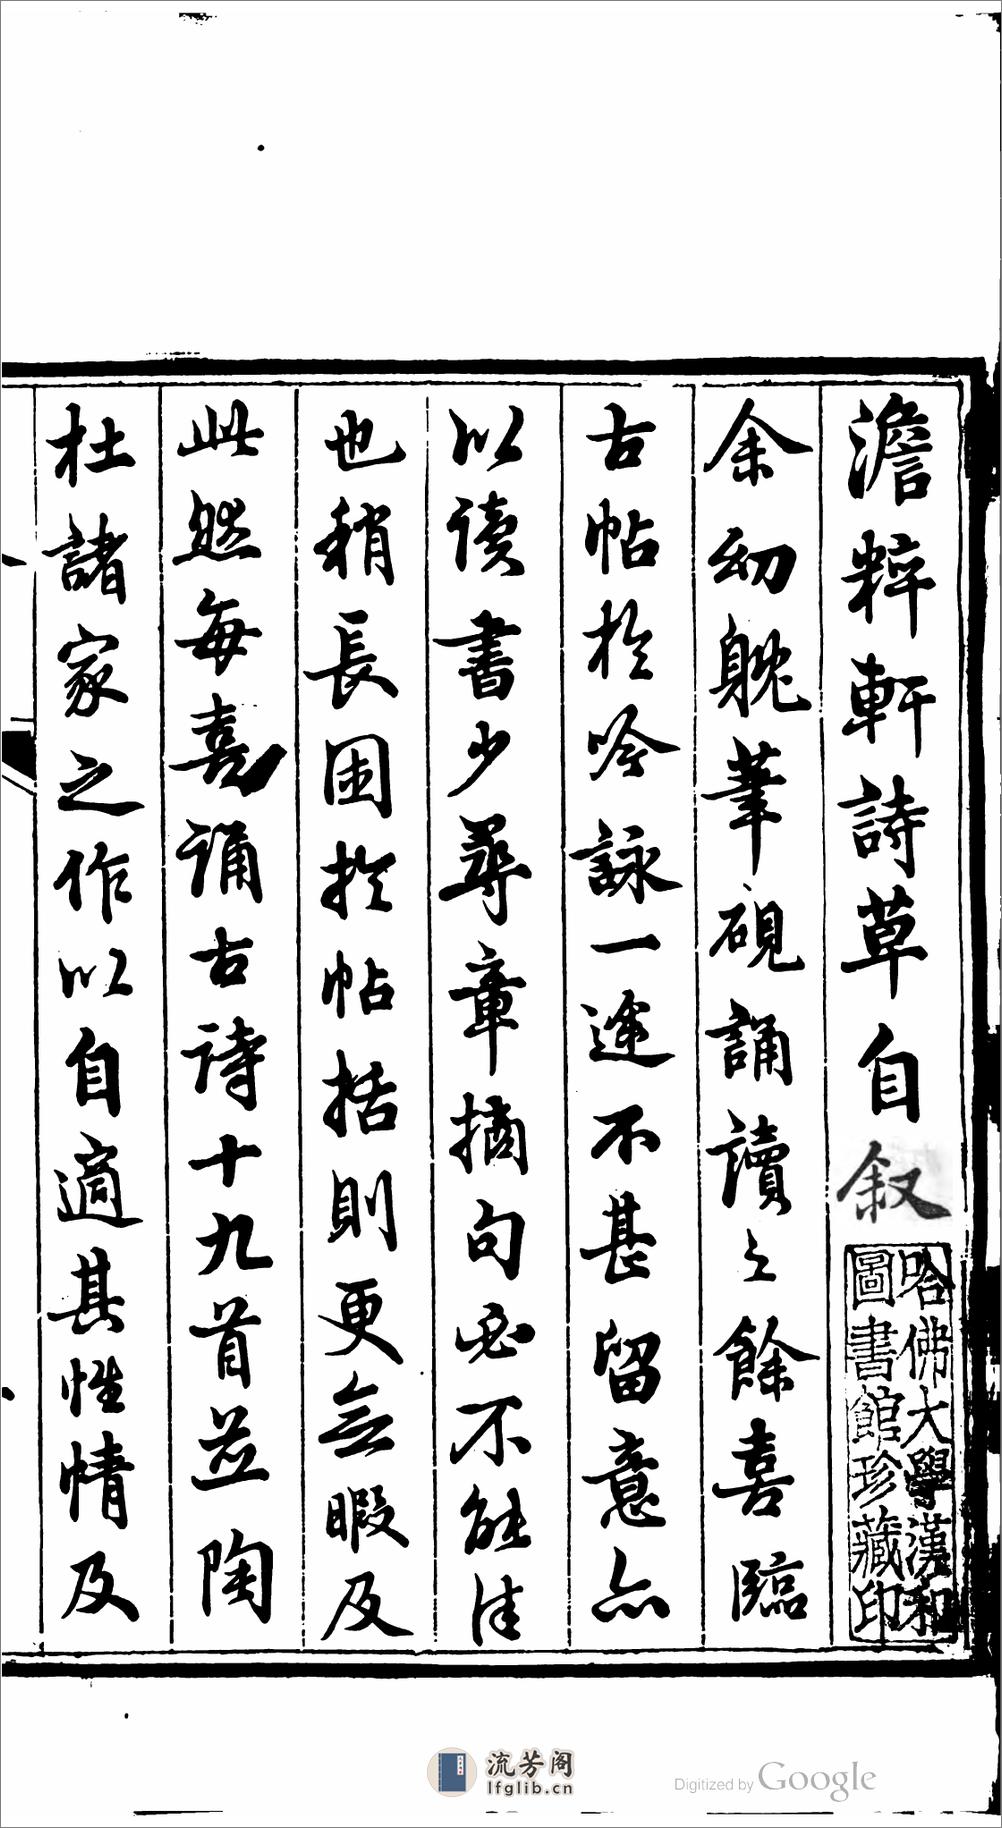 澹粹軒詩草自叙
余幼躭筆硯誦讀之餘喜臨
古帖於吟詠一途不甚留意亦
以读書少尋章摘句必不能佳
也稍長困扵帖括則更無暇及
此然每喜诵古诗十九首並陶
杜諸家之作以自適其性情及
哈佛大學漢和
圖書館珍藏印
流芳阁
lfglib.cn
Digitized by Google